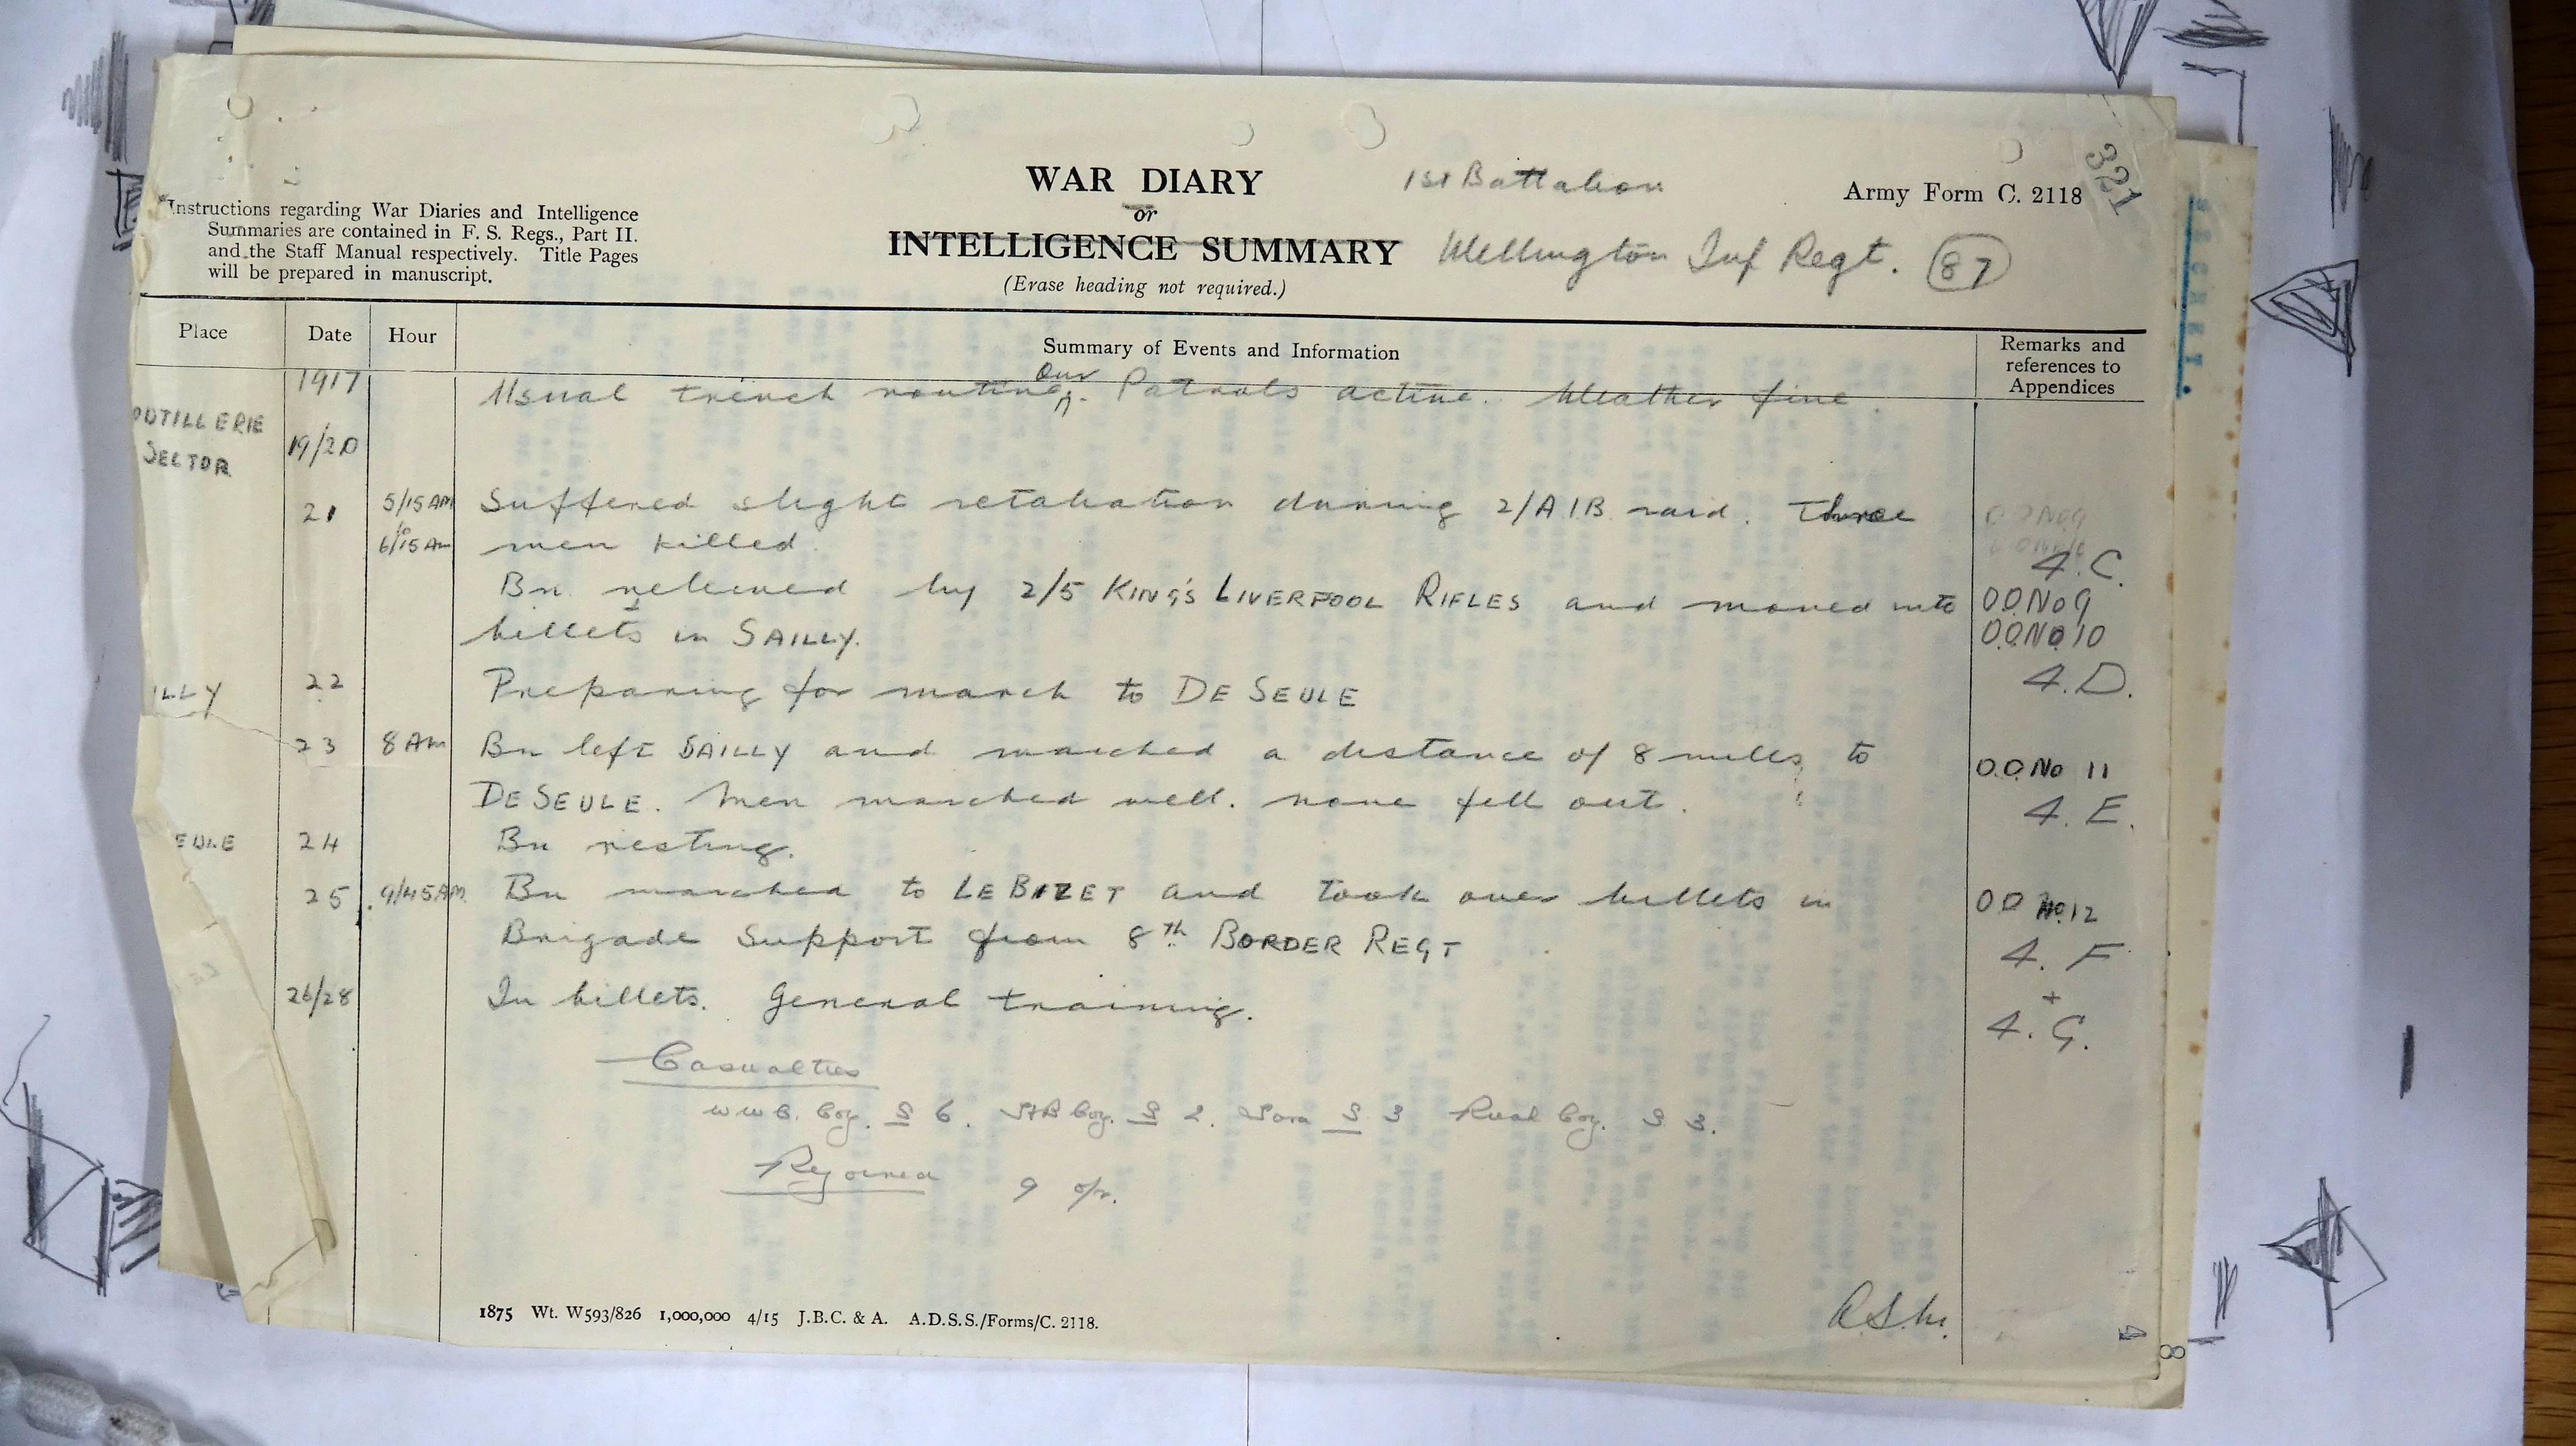 321
WAR DIARY
or
INTELLIGENCE SUMMARY
(Erase heading not required.)
1st Battalion
Wellington Inf Regt. 87
Army Form C. 2118
Instructions regarding War Diaries and Intelligence
Summaries are contained in F. S. Regs., Part II.
and the Staff Manual respectively. Title Pages
will be prepared in manuscript.
SECRET.
Place Date Hour Summary of Events and Information Remarks and
references to
Appendices
1917 Usual trench routine. Our Patrols active. Weather fine.
OUTILLERIE
SECTOR 19/20
21 5/15 AM Suffered slight retaliation during 2/AIB raid. Three OO No 9
to
6/15 AM men killed.
4.C.
Bn relieved by 2/5 KING'S LIVERPOOL RIFLES and moved into OO.No 9
billets in SAILLY. O.O.No 10
ILLY 22 Preparing for march to DE SEULE 4.D.
23 8 AM Bn left SAILLY and marched a distance of 8 miles to O.O.No 11
DE SEULE. Men marched well. none fell out. 4.E.
EULE 24 Bn resting.
25 9/45 AM Bn marched to LE BIZET and took over billets in OO No.12
Brigade Support from 8th BORDER REGT 4.F
+
26/28 In billets. General training. 4.G.
Casualties
W W C. Coy. S 6. Coy. S 2. S 3 Coy. S 3.
Rejoined 9 o/r.
1875 Wt. W593/826 1,000,000 4/15 J.B.C. & A. A.D.S.S./Forms/C. 2118.
4
8